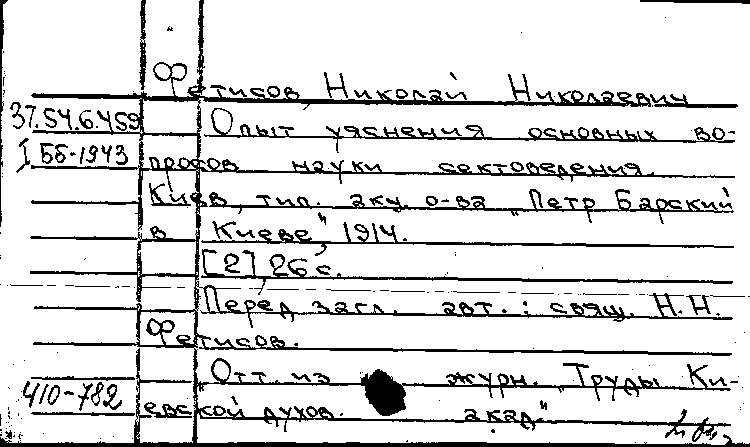 Фетисов, Николай Николаевич
37.54.6.459 Опыт уяснения основных во-
I ББ-1943 просов науки сектоведения.
Киев, тип. акц. о-ва „Петр Барский
в Киеве", 1914.
[2], 26 с.
Перед загл. авт.: свящ. Н.Н.
Фетисов.
Отт. из журн. „Труды Ки-
410-782 евской духов. акад."